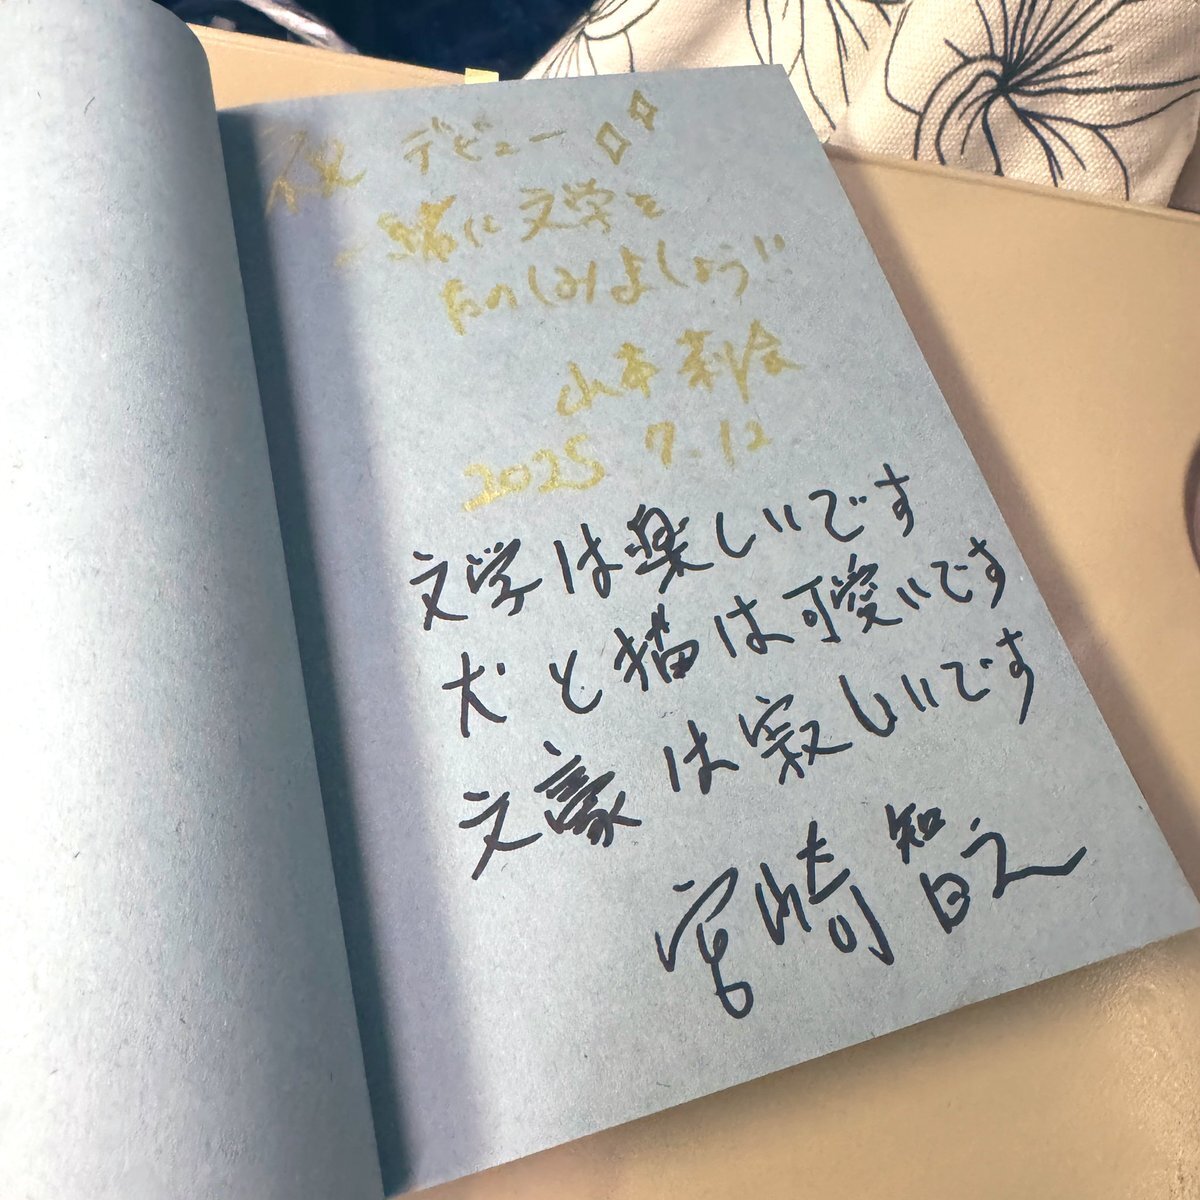 デビュー
一緒に文学を
たのしみましょう!!
山本莉会
2025 7.12
文学は楽しいです
犬と猫は可愛いです
文豪は寂しいです
宮崎智之